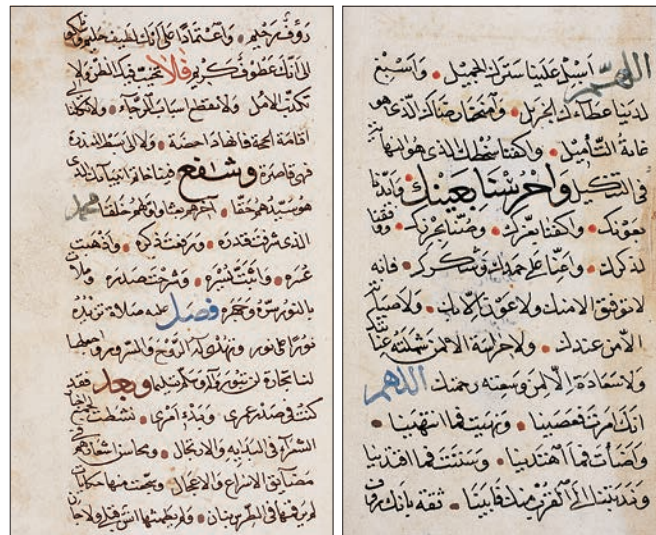 اللهم اسبل علينا سترك الجميل • واسبغ
لدينا عطاءك الجزيل • وامنحنا رضاك الذي هو
غاية التأميل • واكفنا سخطك الذي هو النهاية
في التنكيل • واحرسنا بعينك • وايدنا
بعونك • واكنفنا بعزك • وصنا بحرزك • ووفقنا
لذكرك • واعنا على حمدك وشكرك • فانه
لا توفيق الا منك ولا عون الا بك • ولا صيانة
الا من عندك • ولا حراسة الا لمن شملته عنايتك
ولا سعادة الا لمن وسعته رحمتك اللهم
انك امرت فعصينا • ونهيت فما انتهينا •
واضأت فما اهتدينا • وسننت فما اقتدينا
وندبتنا الى القرب منك فابينا • ثقة بانك رؤف
رؤف رحيم • واعتمادا على انك لطيف حليم
الى انك عطوف كريم فلا تخيب فيك الظن ولا
تكذب الامل ولا تقطع اسباب الرجاء • ولا تكلنا الى
اقامة الحجة فانها داحضة • ولا الى بسط المعذرة
فهي قاصرة وشفع فينا خاتم انبيائك الذي
هو سيدهم حقا • آخرهم بعثا واولهم خلقا محمد
الذي شرفت قدره • ورفعت ذكره • واذهبت
عسره • واثبت يسره • وشرحت صدره • وملأت
بالنور سره وجهره فصل عليه صلاة تزيده
نورا على نور وتهدي له الروح والسرور واجعلها
لنا تجارة لن تبور وآله وسلم تسليما وبعد فقد
كنت في صدر عمري • وبدء امري • نشطت لجمع
الشعراء في البدايه والارتجال • ومحاسن اشعارهم في
مضايق الاسراع والاعجال • منها حكايات
فيها في الطرس بنان • ولم يطمثها انس قبلي ولا جان